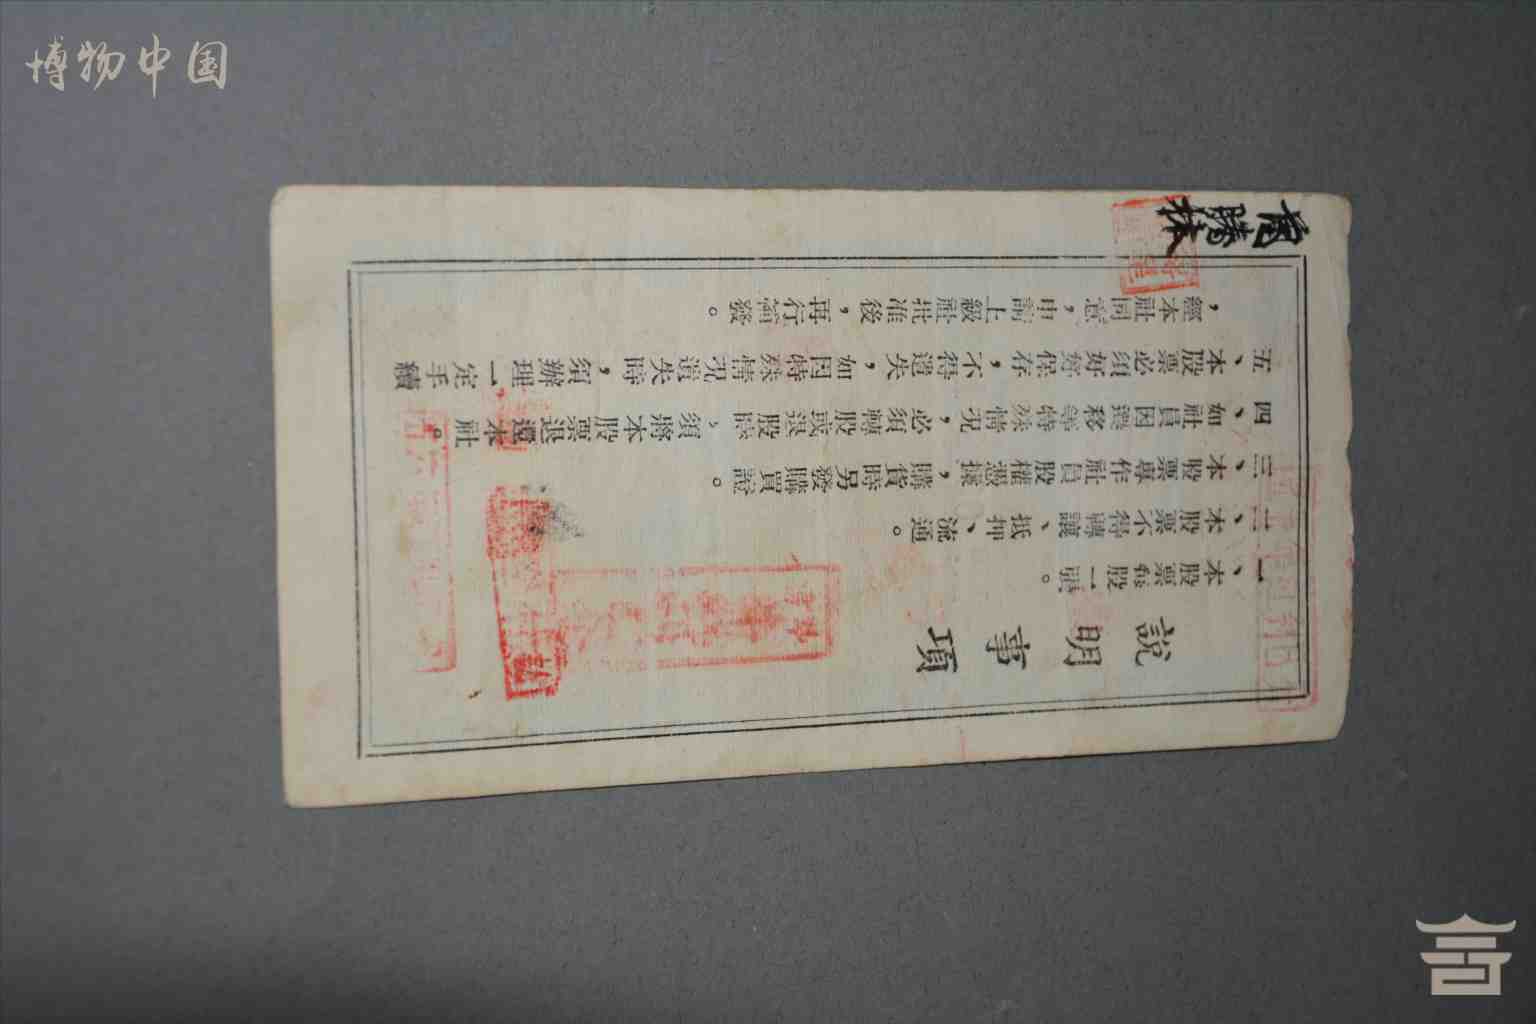 博物中国
說明事項
一、本股票每股一張。
二、本股票不得轉讓、抵押、流通。
三、本股票專作社員股權憑據,購貨時另發購買證。
四、如社員因遷移等特殊情況,必須轉股或退股時,須將本股票退還本社。
五、本股票必須好好保存,不得遺失,如因特殊情況遺失時,須辦理一定手續
,經本社同意,申請上級社批准後,再行補發。